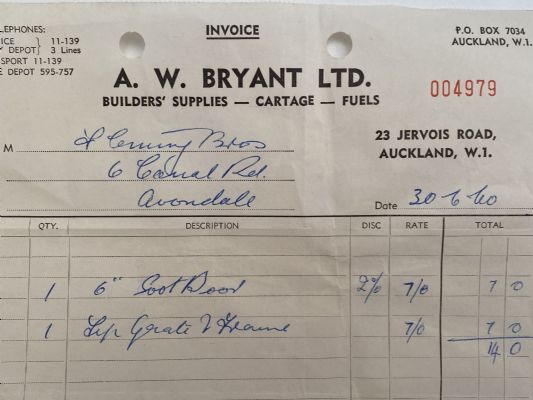 LEPHONES:
ICE } 11-139
DEPOT } 3 Lines
SPORT 11-139
E DEPOT 595-757
INVOICE
P.O. BOX 7034
AUCKLAND, W.1.
A. W. BRYANT LTD.
BUILDERS' SUPPLIES — CARTAGE — FUELS
004979
M Fleming Bros
6 Canal Rd.
Avondale
23 JERVOIS ROAD,
AUCKLAND, W.1.
Date 30-6-60
QTY. DESCRIPTION DISC RATE TOTAL
1 6" Soot Door 2% 7/0 7 0
1 Grate & Frame 7/0 7 0
14 0